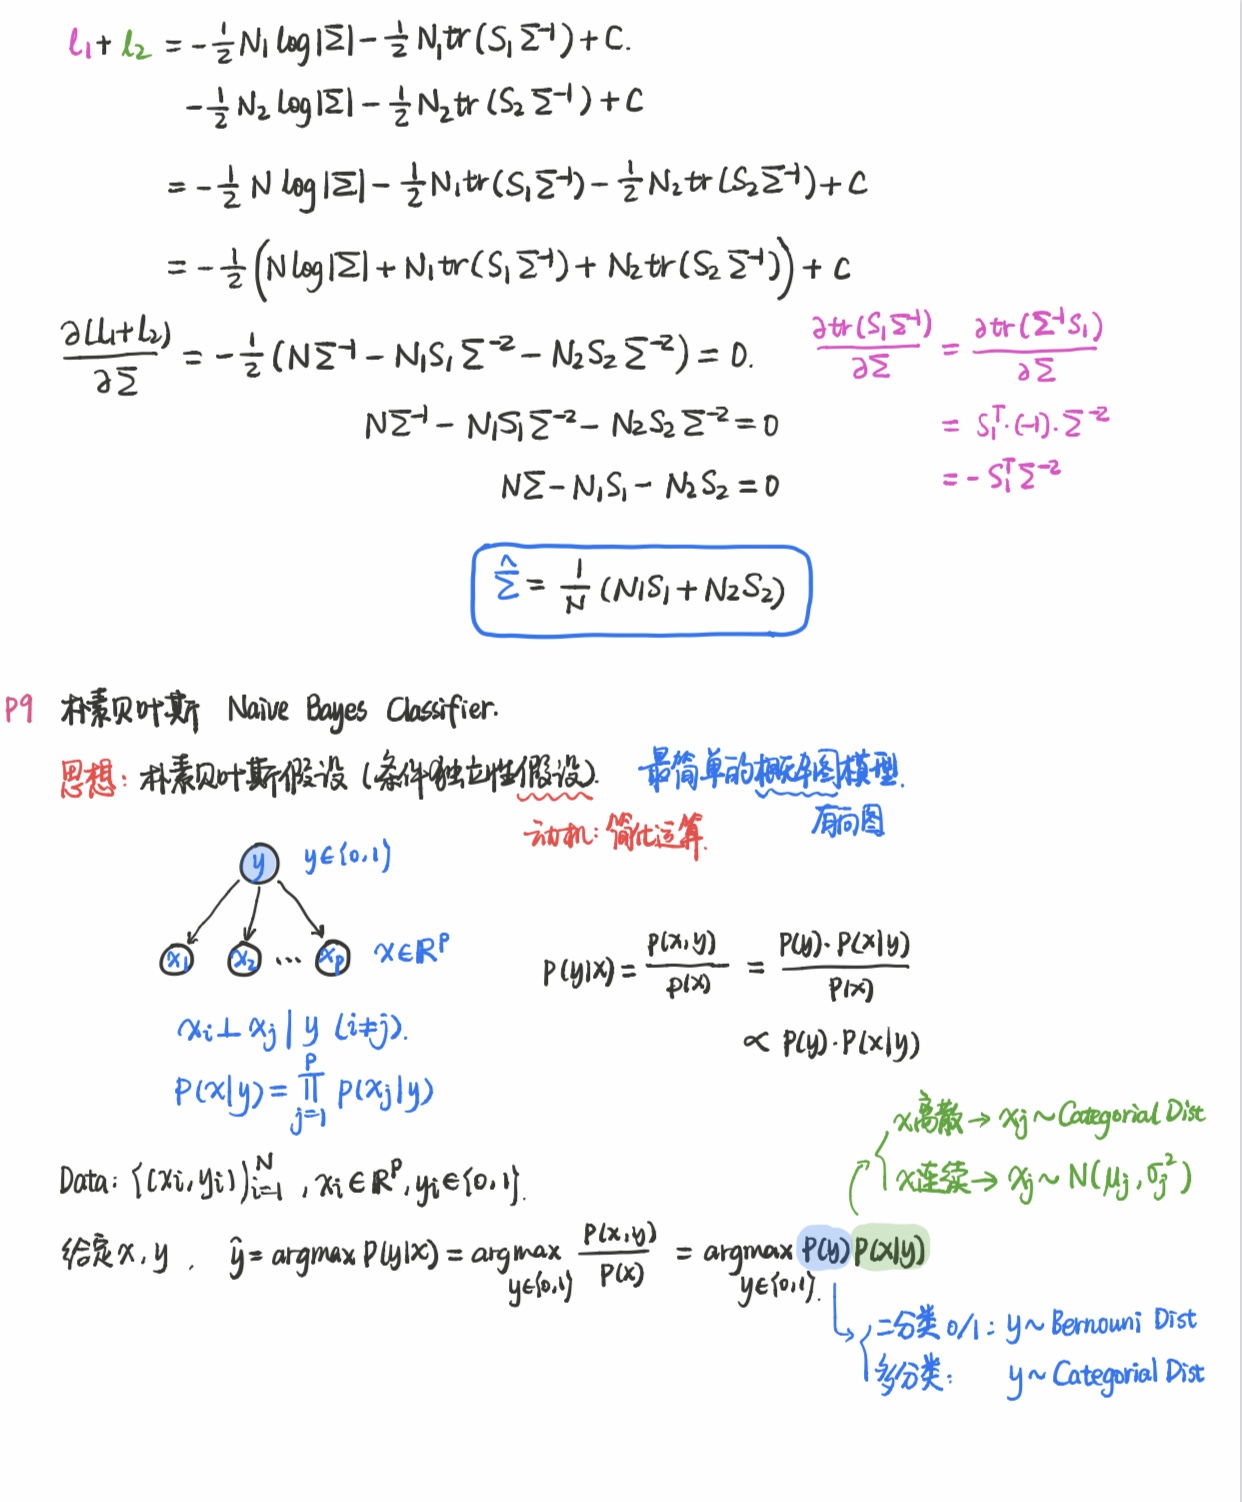 l₁ + l₂ = -½ N₁ log|Σ| - ½ N₁ tr(S₁ Σ⁻¹) + C.
-½ N₂ log|Σ| - ½ N₂ tr(S₂ Σ⁻¹) + C
= -½ N log|Σ| - ½ N₁ tr(S₁ Σ⁻¹) - ½ N₂ tr(S₂ Σ⁻¹) + C
= -½ (N log|Σ| + N₁ tr(S₁ Σ⁻¹) + N₂ tr(S₂ Σ⁻¹)) + C
∂(l₁+l₂)/∂Σ = -½ (NΣ⁻¹ - N₁S₁Σ⁻² - N₂S₂Σ⁻²) = 0.
∂tr(S₁Σ⁻¹)/∂Σ = ∂tr(Σ⁻¹S₁)/∂Σ
NΣ⁻¹ - N₁S₁Σ⁻² - N₂S₂Σ⁻² = 0
= S₁ᵀ·(-1)·Σ⁻²
NΣ - N₁S₁ - N₂S₂ = 0
= -S₁ᵀΣ⁻²
Σ̂ = 1/N (N₁S₁ + N₂S₂)
P9 朴素贝叶斯 Naive Bayes Classifier.
思想: 朴素贝叶斯假设 (条件独立性假设). 最简单的概率图模型.
动机: 简化运算. 有向图
y y∈{0,1}
x₁ x₂ ... xₚ x∈ℝᵖ
P(y|x) = P(x,y)/P(x) = P(y)·P(x|y)/P(x)
∝ P(y)·P(x|y)
xᵢ ⊥ xⱼ | y (i≠j).
P(x|y) = ∏ⱼ₌₁ᵖ P(xⱼ|y)
x离散 → xⱼ ~ Categorial Dist
x连续 → xⱼ ~ N(μⱼ, σⱼ²)
Data: {(xᵢ, yᵢ)}ᵢ₌₁ᴺ, xᵢ∈ℝᵖ, yᵢ∈{0,1}.
给定x, y. ŷ = argmax P(y|x) = argmax y∈{0,1} P(x,y)/P(x) = argmax y∈{0,1}. P(y) P(x|y)
二分类 0/1: y ~ Bernouni Dist
多分类: y ~ Categorial Dist